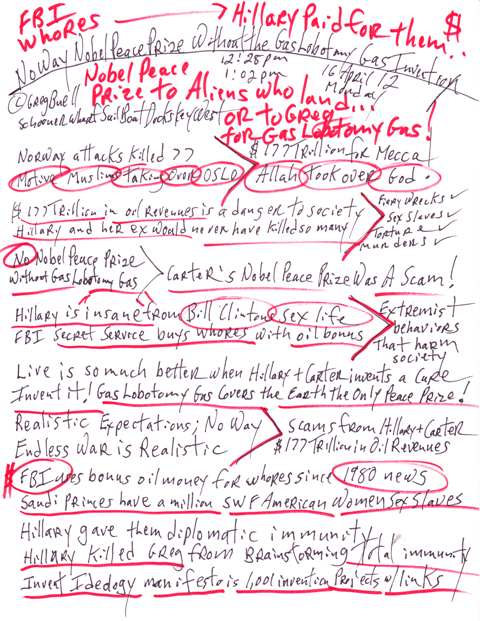 FBI
Whores
Hillary Paid for them..
$
No Way Nobel Peace Prize Without the Gas Lobotomy Gas Invention
12:28pm
1:02pm
16 April 12
Monday
Nobel Peace
Prize to Aliens who land...
or to Greg
for Gas Lobotomy Gas!
© Greg Buell
Schooner Wharf Sail Boat Docks Key West
Norway attacks killed 77
Motive Muslims taking over OSLO
$177 Trillion for Mecca
Allah took over God.
$177 Trillion in oil Revenues is a danger to society
Hillary and her ex would never have killed so many
Fiery Wrecks ✓
Sex slaves ✓
torture ✓
murders ✓
No Nobel Peace Prize
Without Gas Lobotomy Gas
Carter's Nobel Peace Prize Was A Scam!
Hillary is insane from Bill Clintons sex life
FBI Secret Service buys whores with oil bonus
Extremist
behaviors
That harm
society
Live is so much better when Hillary + Carter invents a Cure
Invent it! Gas Lobotomy Gas Covers the Earth the Only Peace Prize!
Realistic Expectations; No Way
Endless War is Realistic
Scams from Hillary + Carter
$177 Trillion in Oil Revenues
$ FBI uses bonus oil money for whores since 1980 news
Saudi Princes have a million SWF American Women Sex Slaves
Hillary gave them diplomatic immunity
Hillary Killed Greg from Brainstorming Total immunity
Invent Idedogy manifesto is 1,001 invention Projects w/links